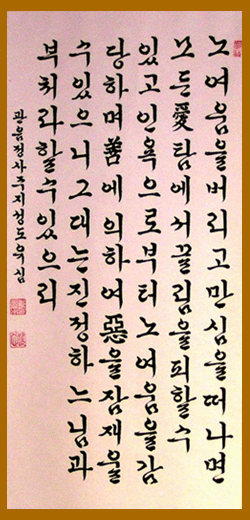 노여움을버리고만심을떠나면
모든愛탐에서끌림을피할수
있고인욕으로부터노여움을감
당하며善에의하여惡을잠재울
수있으니그대는진정하느님과
부처라할수있으리
관음정사주지